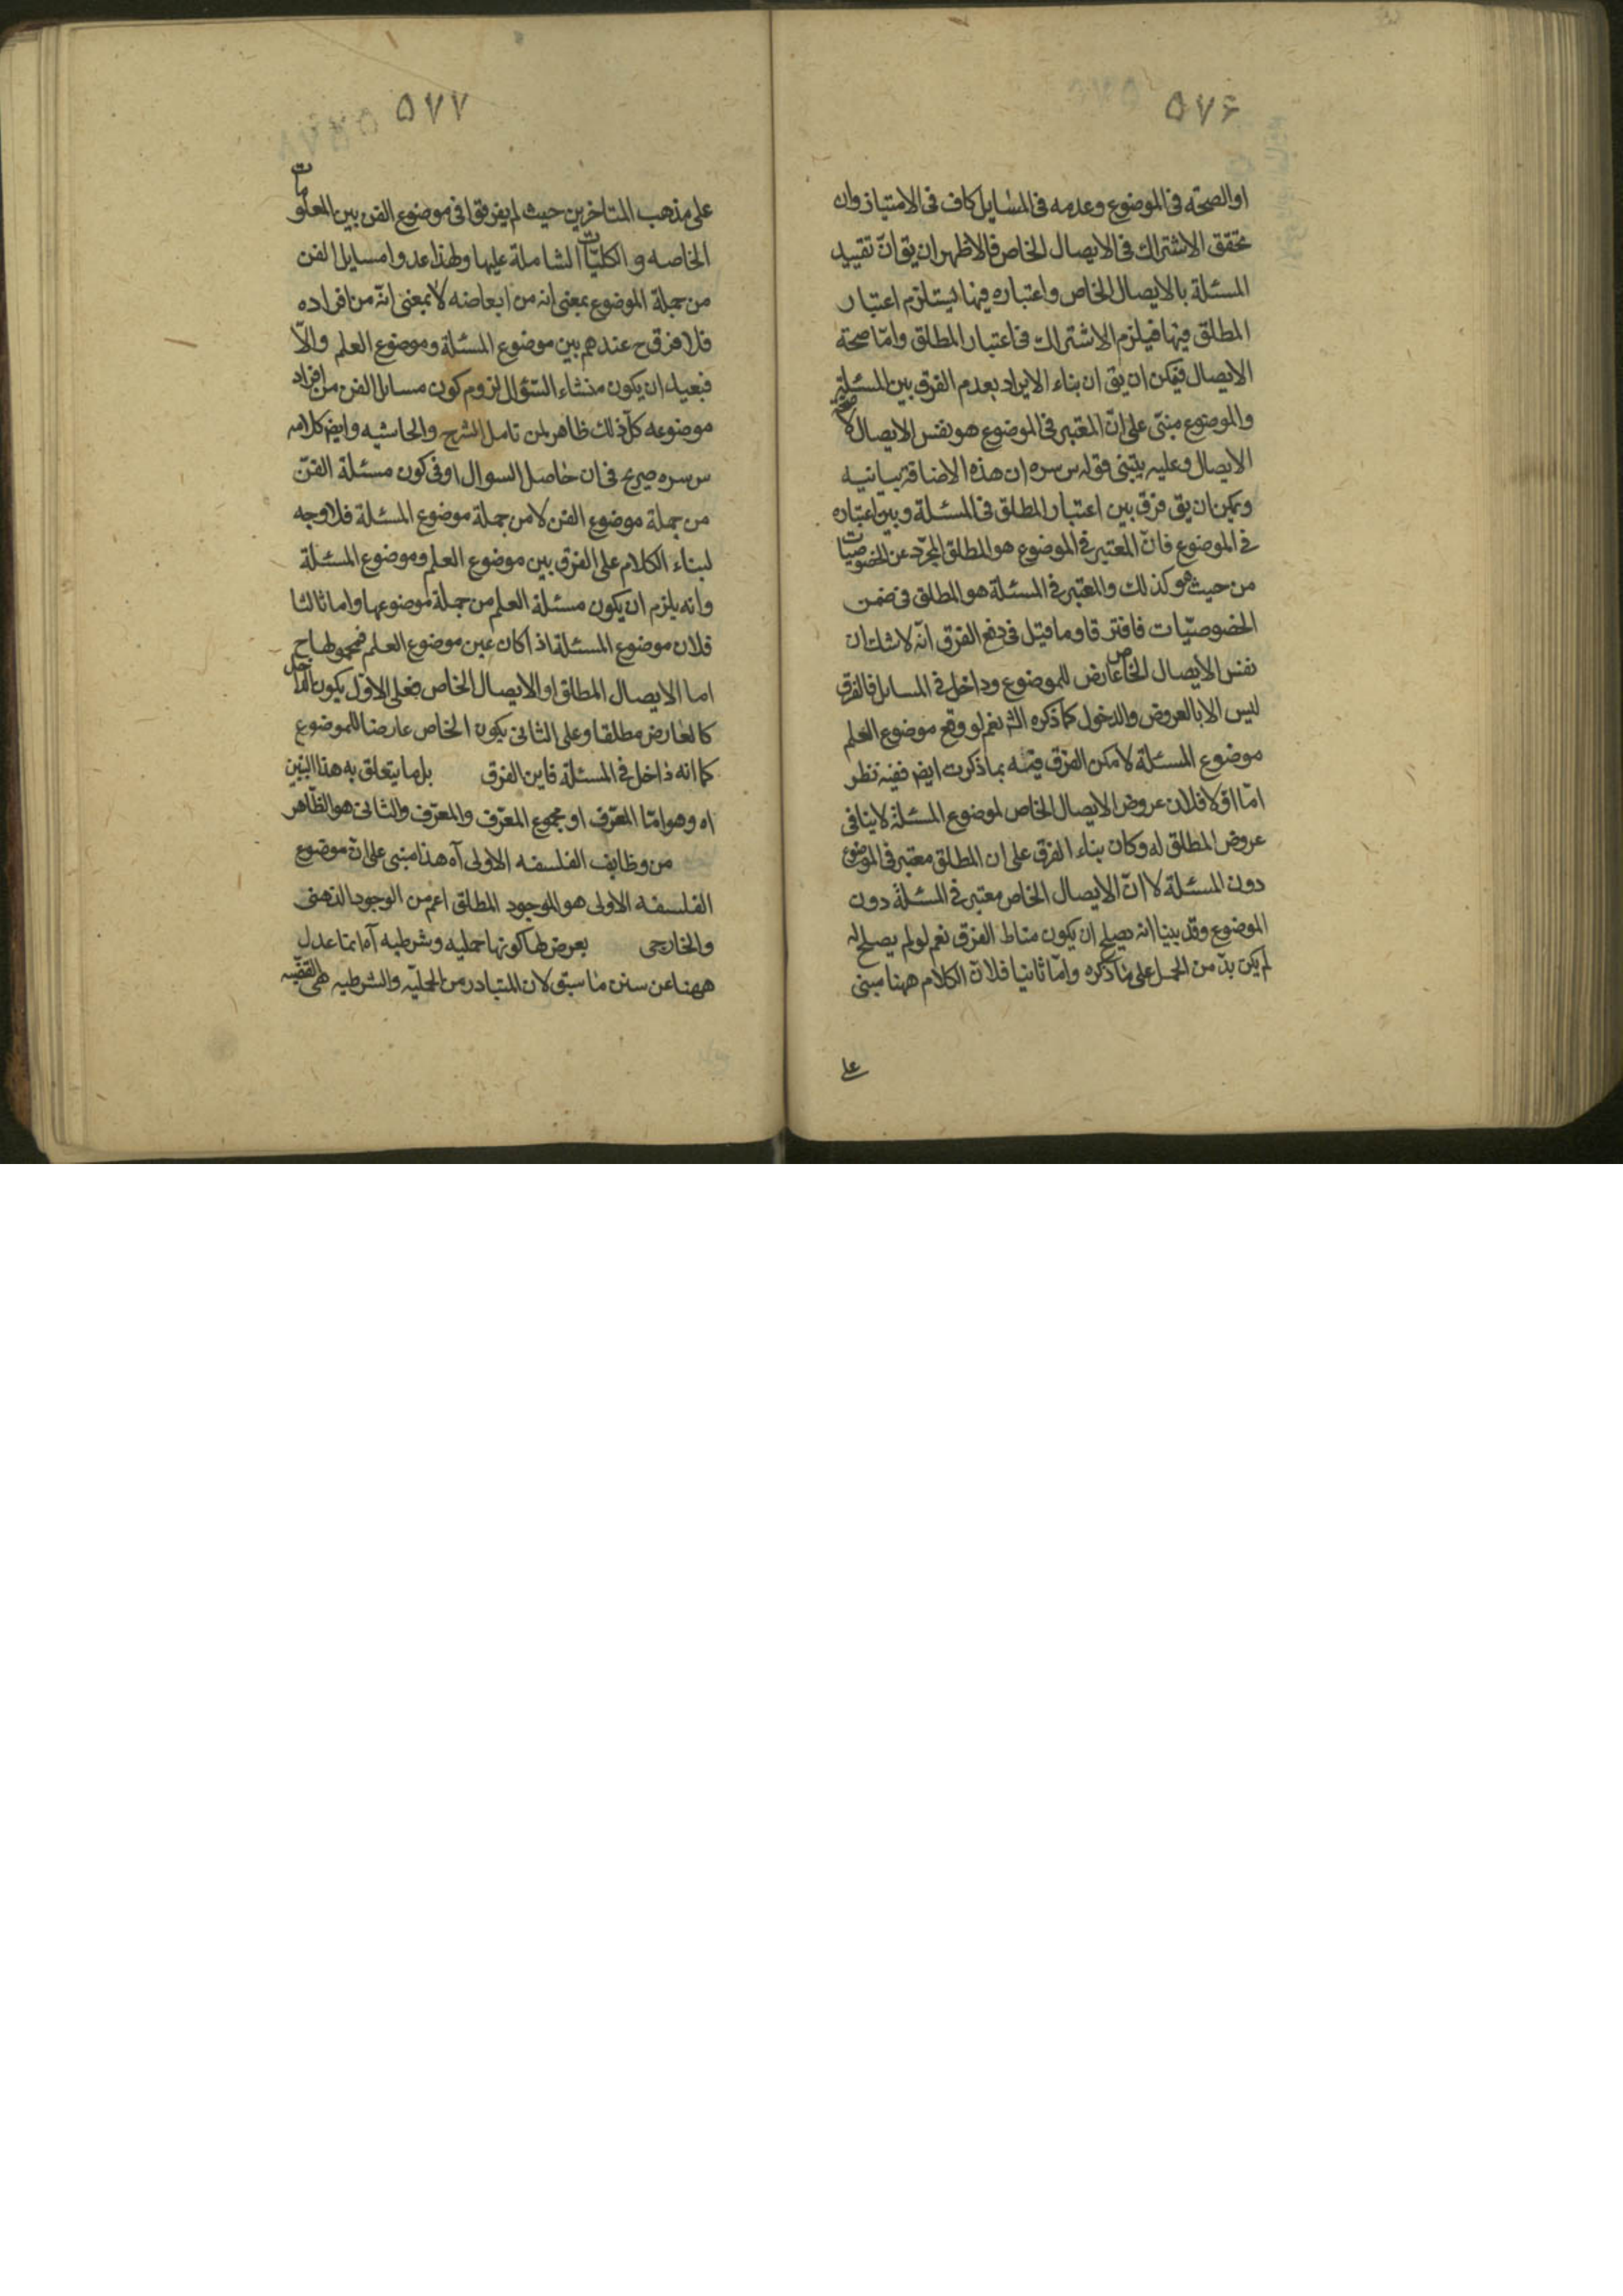 ۵۷۶
او الصحة فى الموضوع وعدمه فى المسايل كاف فى الامتياز وان
تحقق الاشتراك فى الايصال الخاص فالاظهر ان يق ان تقييد
المسئلة بالايصال الخاص واعتباره فيها يستلزم اعتبار
المطلق فيها فيلزم الاشتراك فى اعتبار المطلق وامّا صحة
الايصال فيمكن ان يق ان بناء الايراد بعدم الفرق بين المسئلة
والموضوع مبنى على انّ المعتبر فى الموضوع هو نفس الايصال لا صحة
الايصال وعليه يبتنى قوله س سره ان هذه الاضافة بيانيه
ويمكن ان يق فرق بين اعتبار المطلق فى المسئلة وبين اعتباره
فى الموضوع فانّ المعتبر فى الموضوع هو المطلق المجرّد عن الخصوصيات
من حيث هو كذلك والمعتبر فى المسئلة هو المطلق فى ضمن
الخصوصيّات فافترقا وما قيل فى دفع الفرق انّه لا شك ان
نفس الايصال الخاص عارض للموضوع وداخل فى المسايل فالفرق
ليس الا بالعروض والدخول كما ذكره الشر نعم لو وقع موضوع العلم
موضوع المسئلة لا مكن الفرق فيه بما ذكرت ايضر ففيه نظر
امّا اوّلا فلان عروض الايصال الخاص لموضوع المسئلة لا ينافى
عروض المطلق له وكان بناء الفرق على ان المطلق معتبر فى الموضوع
دون المسئلة لا انّ الايصال الخاص معتبر فى المسئلة دون
الموضوع وقد بينا انه يصلح ان يكون مناط الفرق نعم لو لم يصلح له
لم يكن بدّ من الحمل على ما ذكره وامّا ثانيا فلانّ الكلام ههنا مبنى
على
۵۷۷
على مذهب المتاخرين حيث لم يفرقوا فى موضوع الفن بين المعلومات
الخاصه و الكليّات الشاملة عليها ولهذا عدوا مسايل الفن
من جملة الموضوع بمعنى انه من ابعاضه لا بمعنى انّه من افراده
فلا فرق ح عندهم بين موضوع المسئلة وموضوع العلم والّا
فبعيد ان يكون منشاء السّؤال لزوم كون مسايل الفن من افراد
موضوعه كل ذلك ظاهر لمن تامل الشرح والحاشيه وايضر كلامه
س سره صريح فى ان حاصل السوال اوفى كون مسئلة الفنّ
من جملة موضوع الفن لا من جملة موضوع المسئلة فلا وجه
لبناء الكلام على الفرق بين موضوع العلم وموضوع المسئلة
وانه يلزم ان يكون مسئلة العلم من جملة موضوعها واما ثالثا
فلان موضوع المسئلة اذا كان عين موضوع العلم فمحمولها ح
اما الايصال المطلق او الايصال الخاص فعلى الاوّل يكون الداخل
كالعارض مطلقا وعلى الثانى يكون الخاص عارضا للموضوع
كما انه داخل فى المسئلة فاين الفرق بل ما يتعلق به هذا التبيين
اه وهو امّا المعّرف او مجموع المعّرف والمعّرف والثانى هو الظّاهر
من وظايف الفلسفه الاولى آه هذا مبنى على انّ موضوع
الفلسفه الاولى هو الموجود المطلق اعم من الوجود الذهنى
والخارجى يعرض لها كونها حمليه وشرطيه آه انما عدل
ههنا عن سنن ما سبق لان المتبادر من الحمليّه والشرطيه هى القضيّه